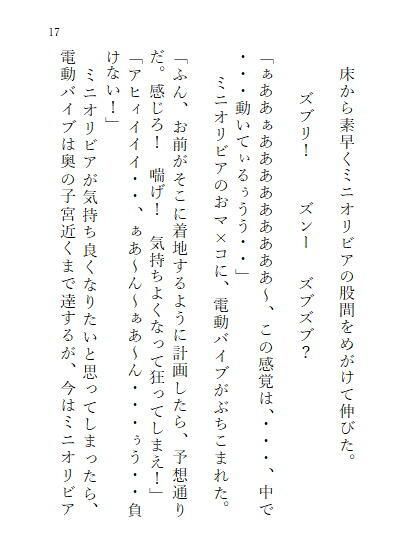 17
床から素早くミニオリビアの股間をめがけて伸びた。
ズブリ！　ズンー　ズブズブ？
「ぁああぁあああああああああ～、この感覚は、・・・、中で
・・・動いてぃるぅうう・・」
ミニオリビアのおマ×コに、電動バイブがぶちこまれた。
「ふん、お前がそこに着地するように計画したら、予想通り
だ。感じろ！　喘げ！　気持ちよくなって狂ってしまえ！」
「アヒィイイイ・・、ぁあ～ん～ぁあ～ん・・・ぅう・・負
けない！」
ミニオリビアが気持ち良くなりたいと思ってしまったら、
電動バイブは奥の子宮近くまで達するが、今はミニオリビア